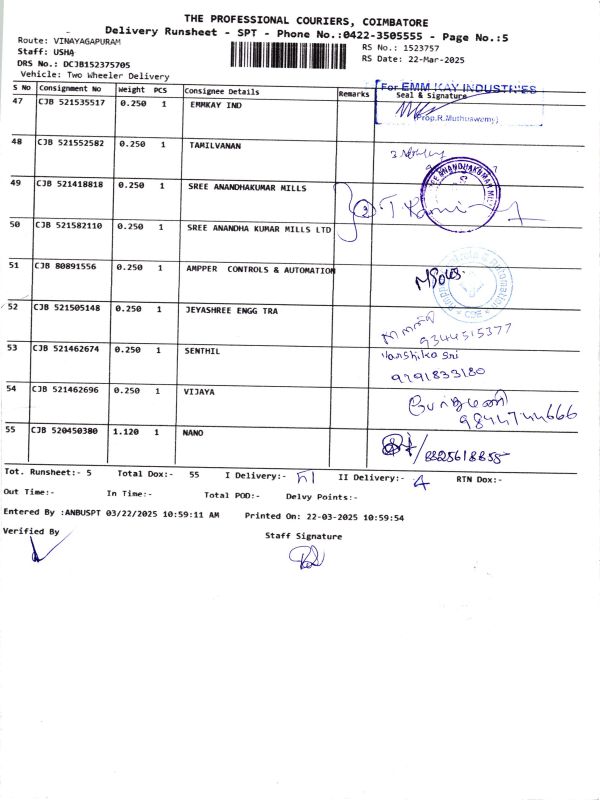 THE PROFESSIONAL COURIERS, COIMBATORE
Delivery Runsheet - SPT - Phone No.:0422-3505555 - Page No.:5
Route: VINAYAGAPURAM
Staff: USHA
DRS No.: DCJB152375705
Vehicle: Two Wheeler Delivery
RS No.: 1523757
RS Date: 22-Mar-2025
S No Consignment No Weight PCS Consignee Details Remarks Seal & Signature
47 CJB 521535517 0.250 1 EMMKAY IND
For EMM KAY INDUSTRIES
(Prop.R.Muthuswamy)
48 CJB 521552582 0.250 1 TAMILVANAN
49 CJB 521418818 0.250 1 SREE ANANDHAKUMAR MILLS
50 CJB 521582110 0.250 1 SREE ANANDHA KUMAR MILLS LTD
51 CJB 80891556 0.250 1 AMPPER CONTROLS & AUTOMATION
52 CJB 521505148 0.250 1 JEYASHREE ENGG TRA
9344515377
53 CJB 521462674 0.250 1 SENTHIL
Varshika sri
9791833180
54 CJB 521462696 0.250 1 VIJAYA
9844744666
55 CJB 520450380 1.120 1 NANO
Tot. Runsheet:- 5 Total Dox:- 55 I Delivery:- 51 II Delivery:- 4 RTN Dox:-
Out Time:- In Time:- Total POD:- Delvy Points:-
Entered By :ANBUSPT 03/22/2025 10:59:11 AM Printed On: 22-03-2025 10:59:54
Verified By
Staff Signature